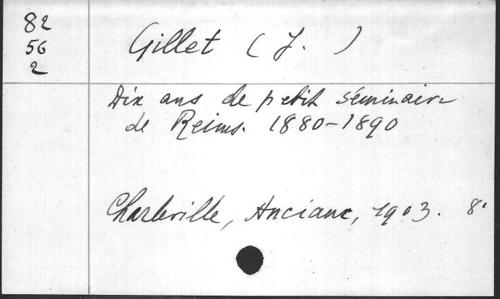 82
56
2
Gillet (J. )
Dix ans de petit séminaire
de Reims. 1880-1890
Charleville, Anciaux, 1903. 8°